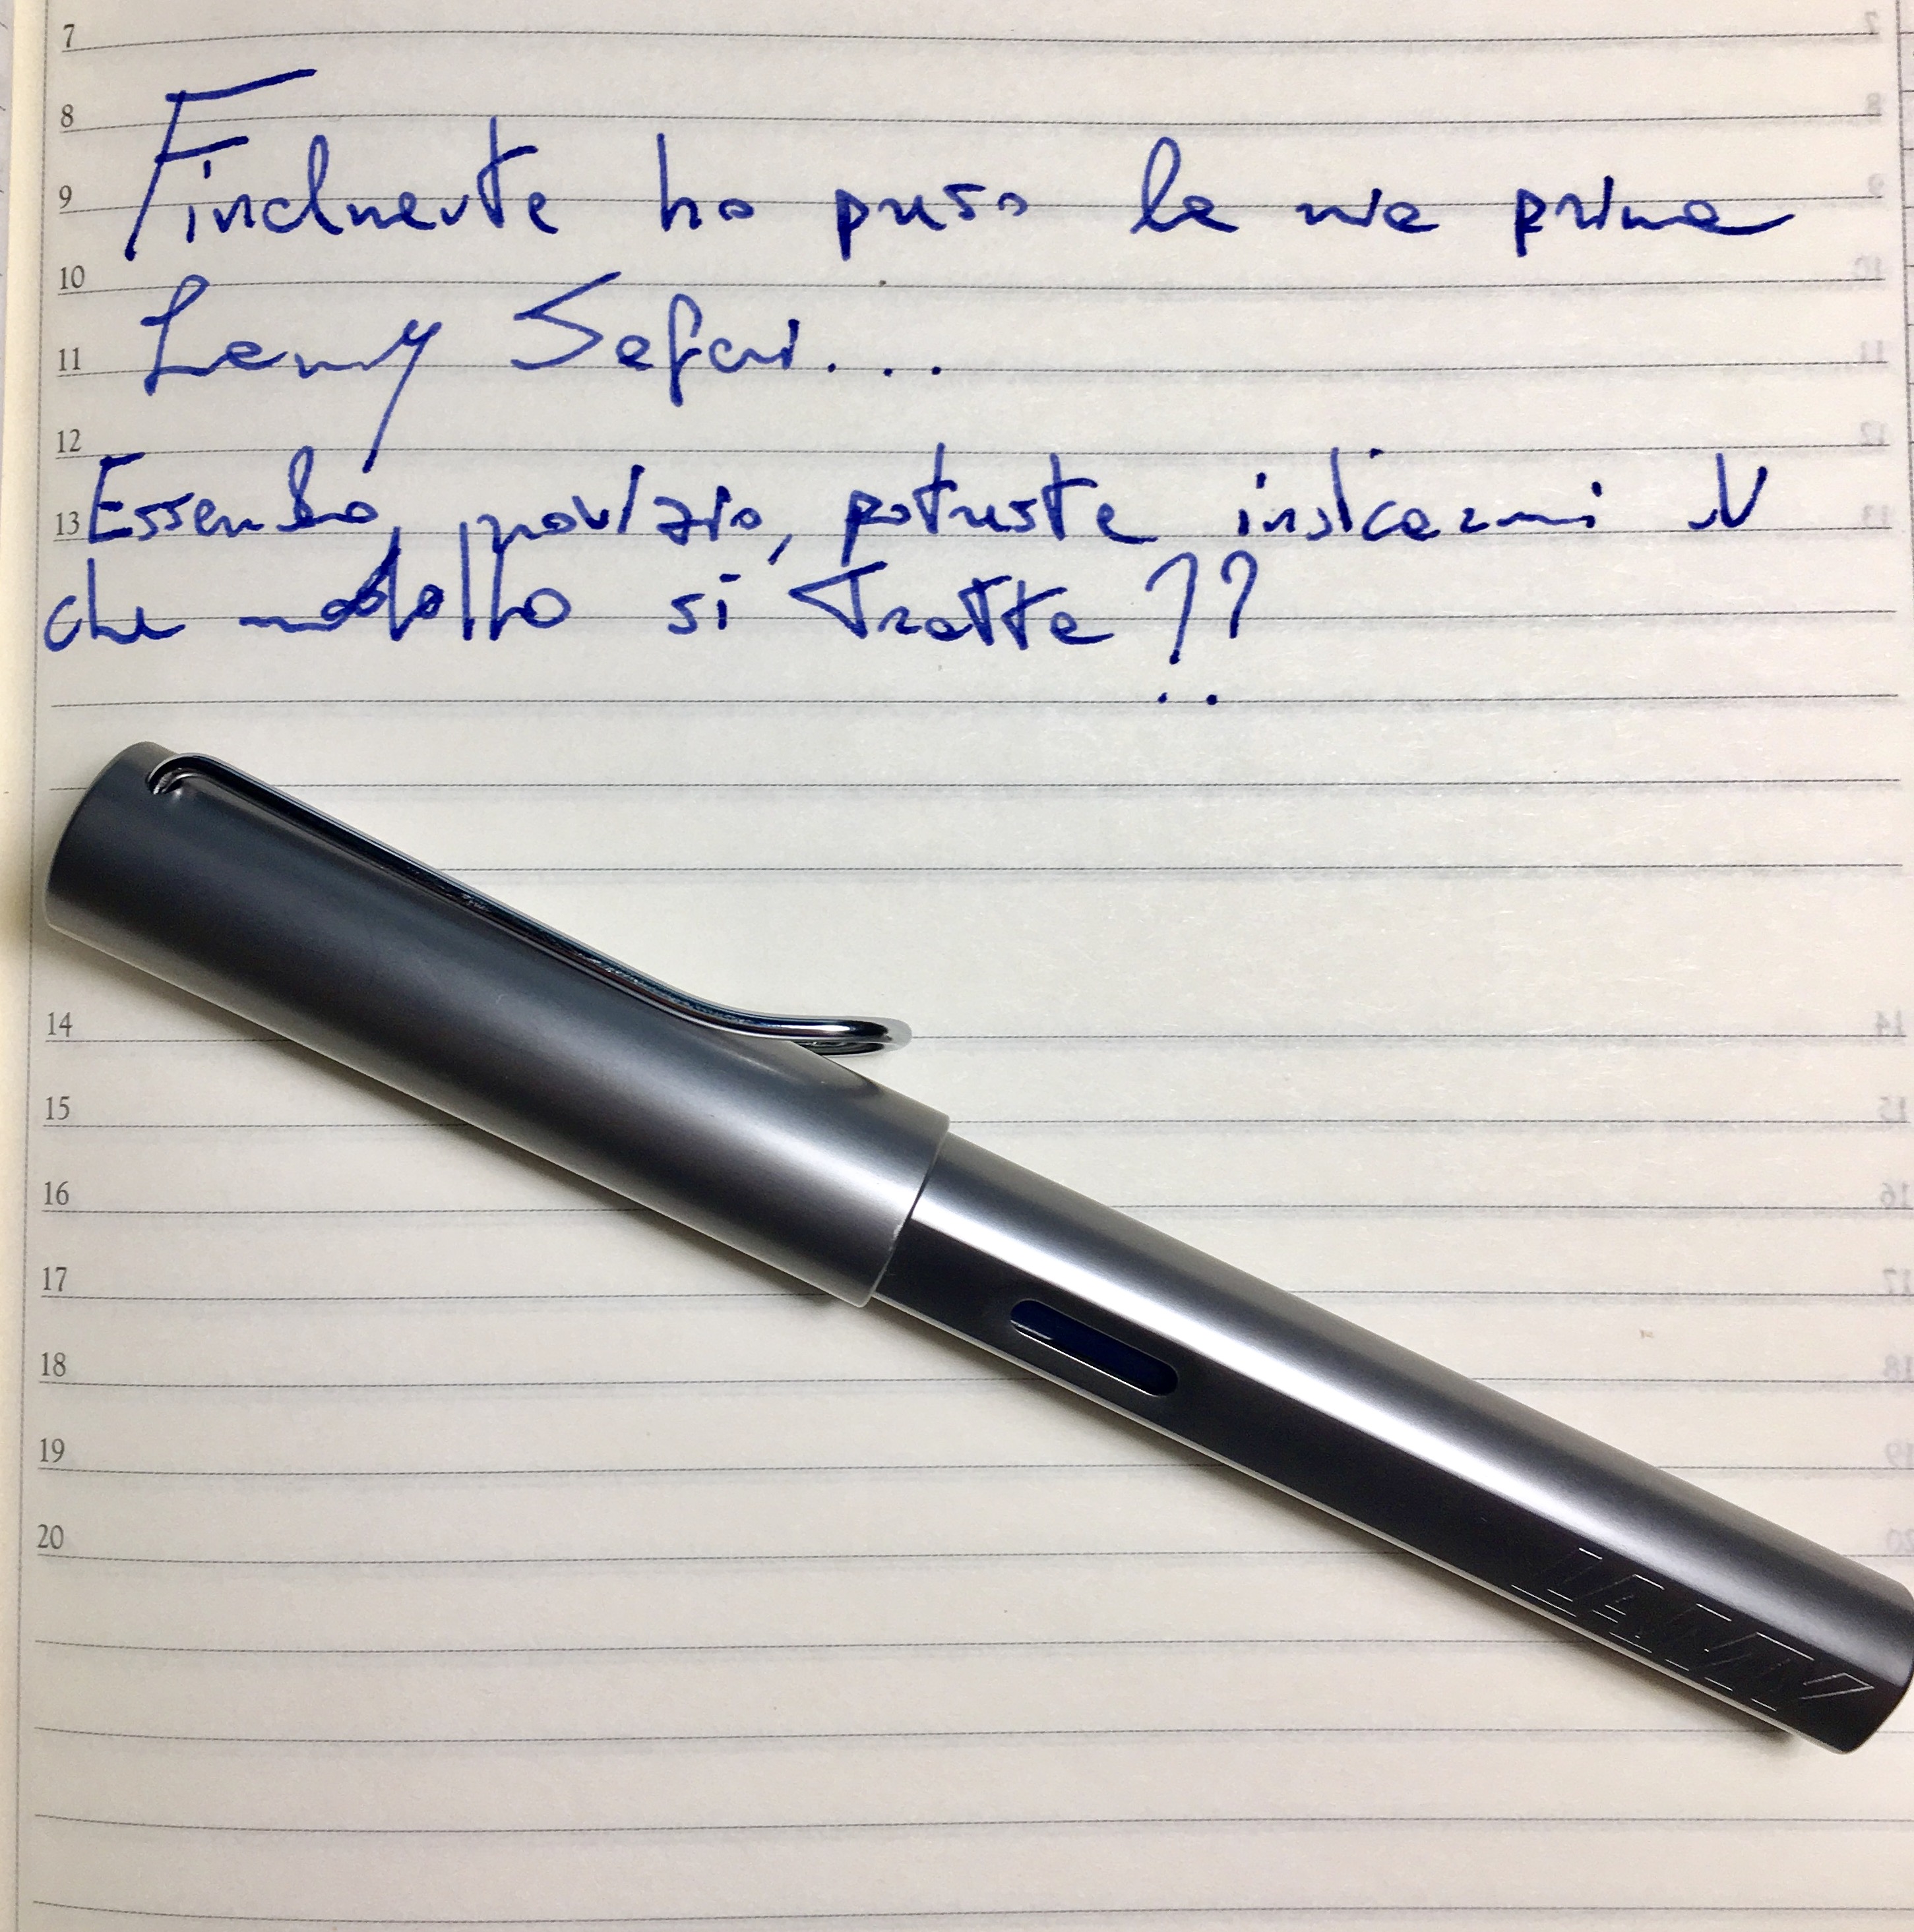 7
8
Finalmente ho preso la mia prima
9
10
Lamy Safari...
11
12
Essendo novizio, potreste indicarmi di
13
che modello si tratta??
14
15
16
17
18
19
20
LAMY